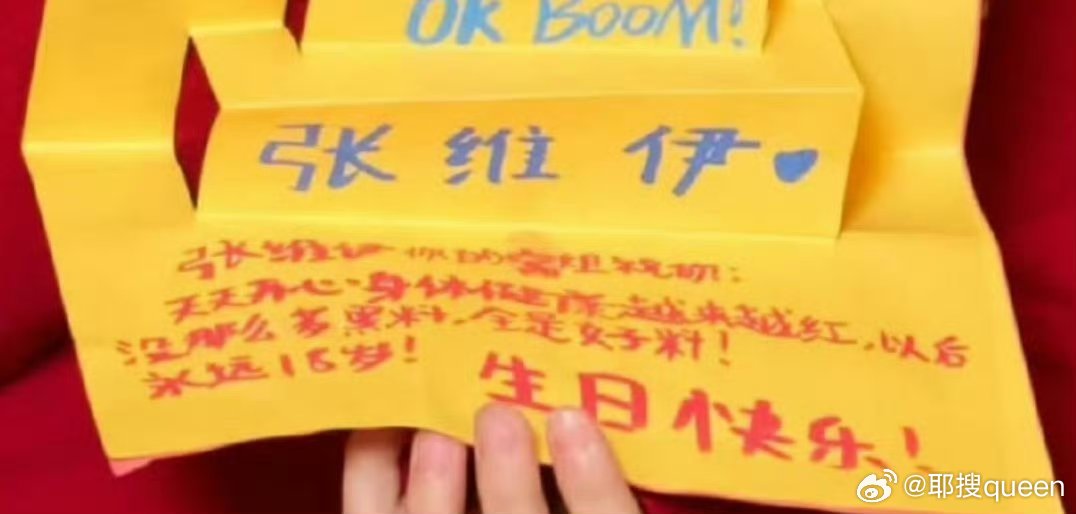 OK BOOM!
张维伊
张维伊你的富姐祝你：
天天开心，身体健康，越来越红，以后
没那么多黑料，全是好料！
永远18岁！
生日快乐！
@耶搜queen